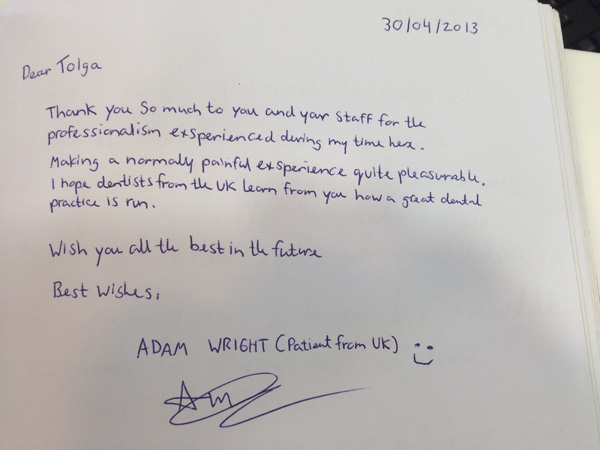 30/04/2013
Dear Tolga
Thank you So much to you and your Staff for the
professionalism exsperienced during my time here.
Making a normaly painful exsperience quite pleasurable.
I hope dentists from the UK learn from you how a great dental
practice is run.
Wish you all the best in the future
Best Wishes,
ADAM WRIGHT (Patient from UK)